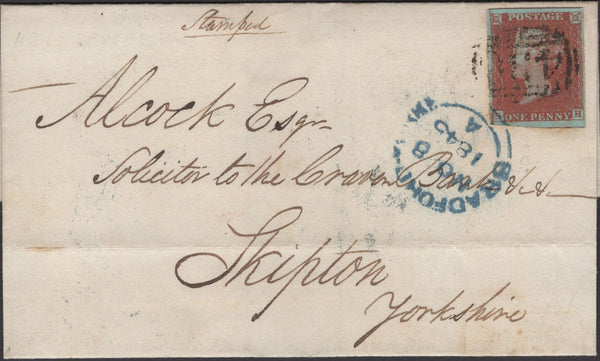 Stamped
POSTAGE
ONE PENNY
H
Alcock Esqr
Solicitor to the Craven Bank &c &c
BRADFORD YORKS
A
Skipton
Yorkshire